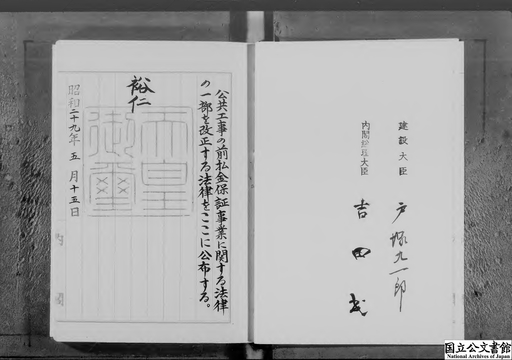 公共工事の前払金保証事業に関する法律
の一部を改正する法律をここに公布する。
裕仁
天皇
御璽
昭和二十九年五月十五日
内閣
建設大臣
戸塚九一郎
内閣総理大臣
吉田茂
国立公文書館
National Archives of Japan